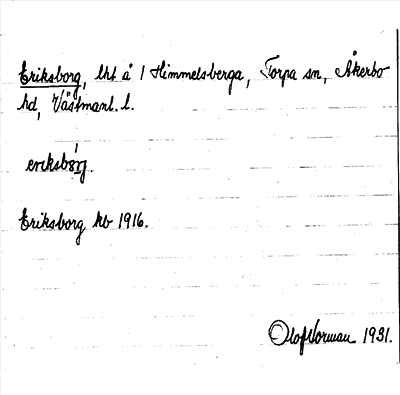 Eriksborg, lht å 1 Himmelsberga, Torpa sn, Åkerbo
hd, Västmanl. l.
eriksbǫrj.
Eriksborg kb 1916.
Olof Norman 1931.